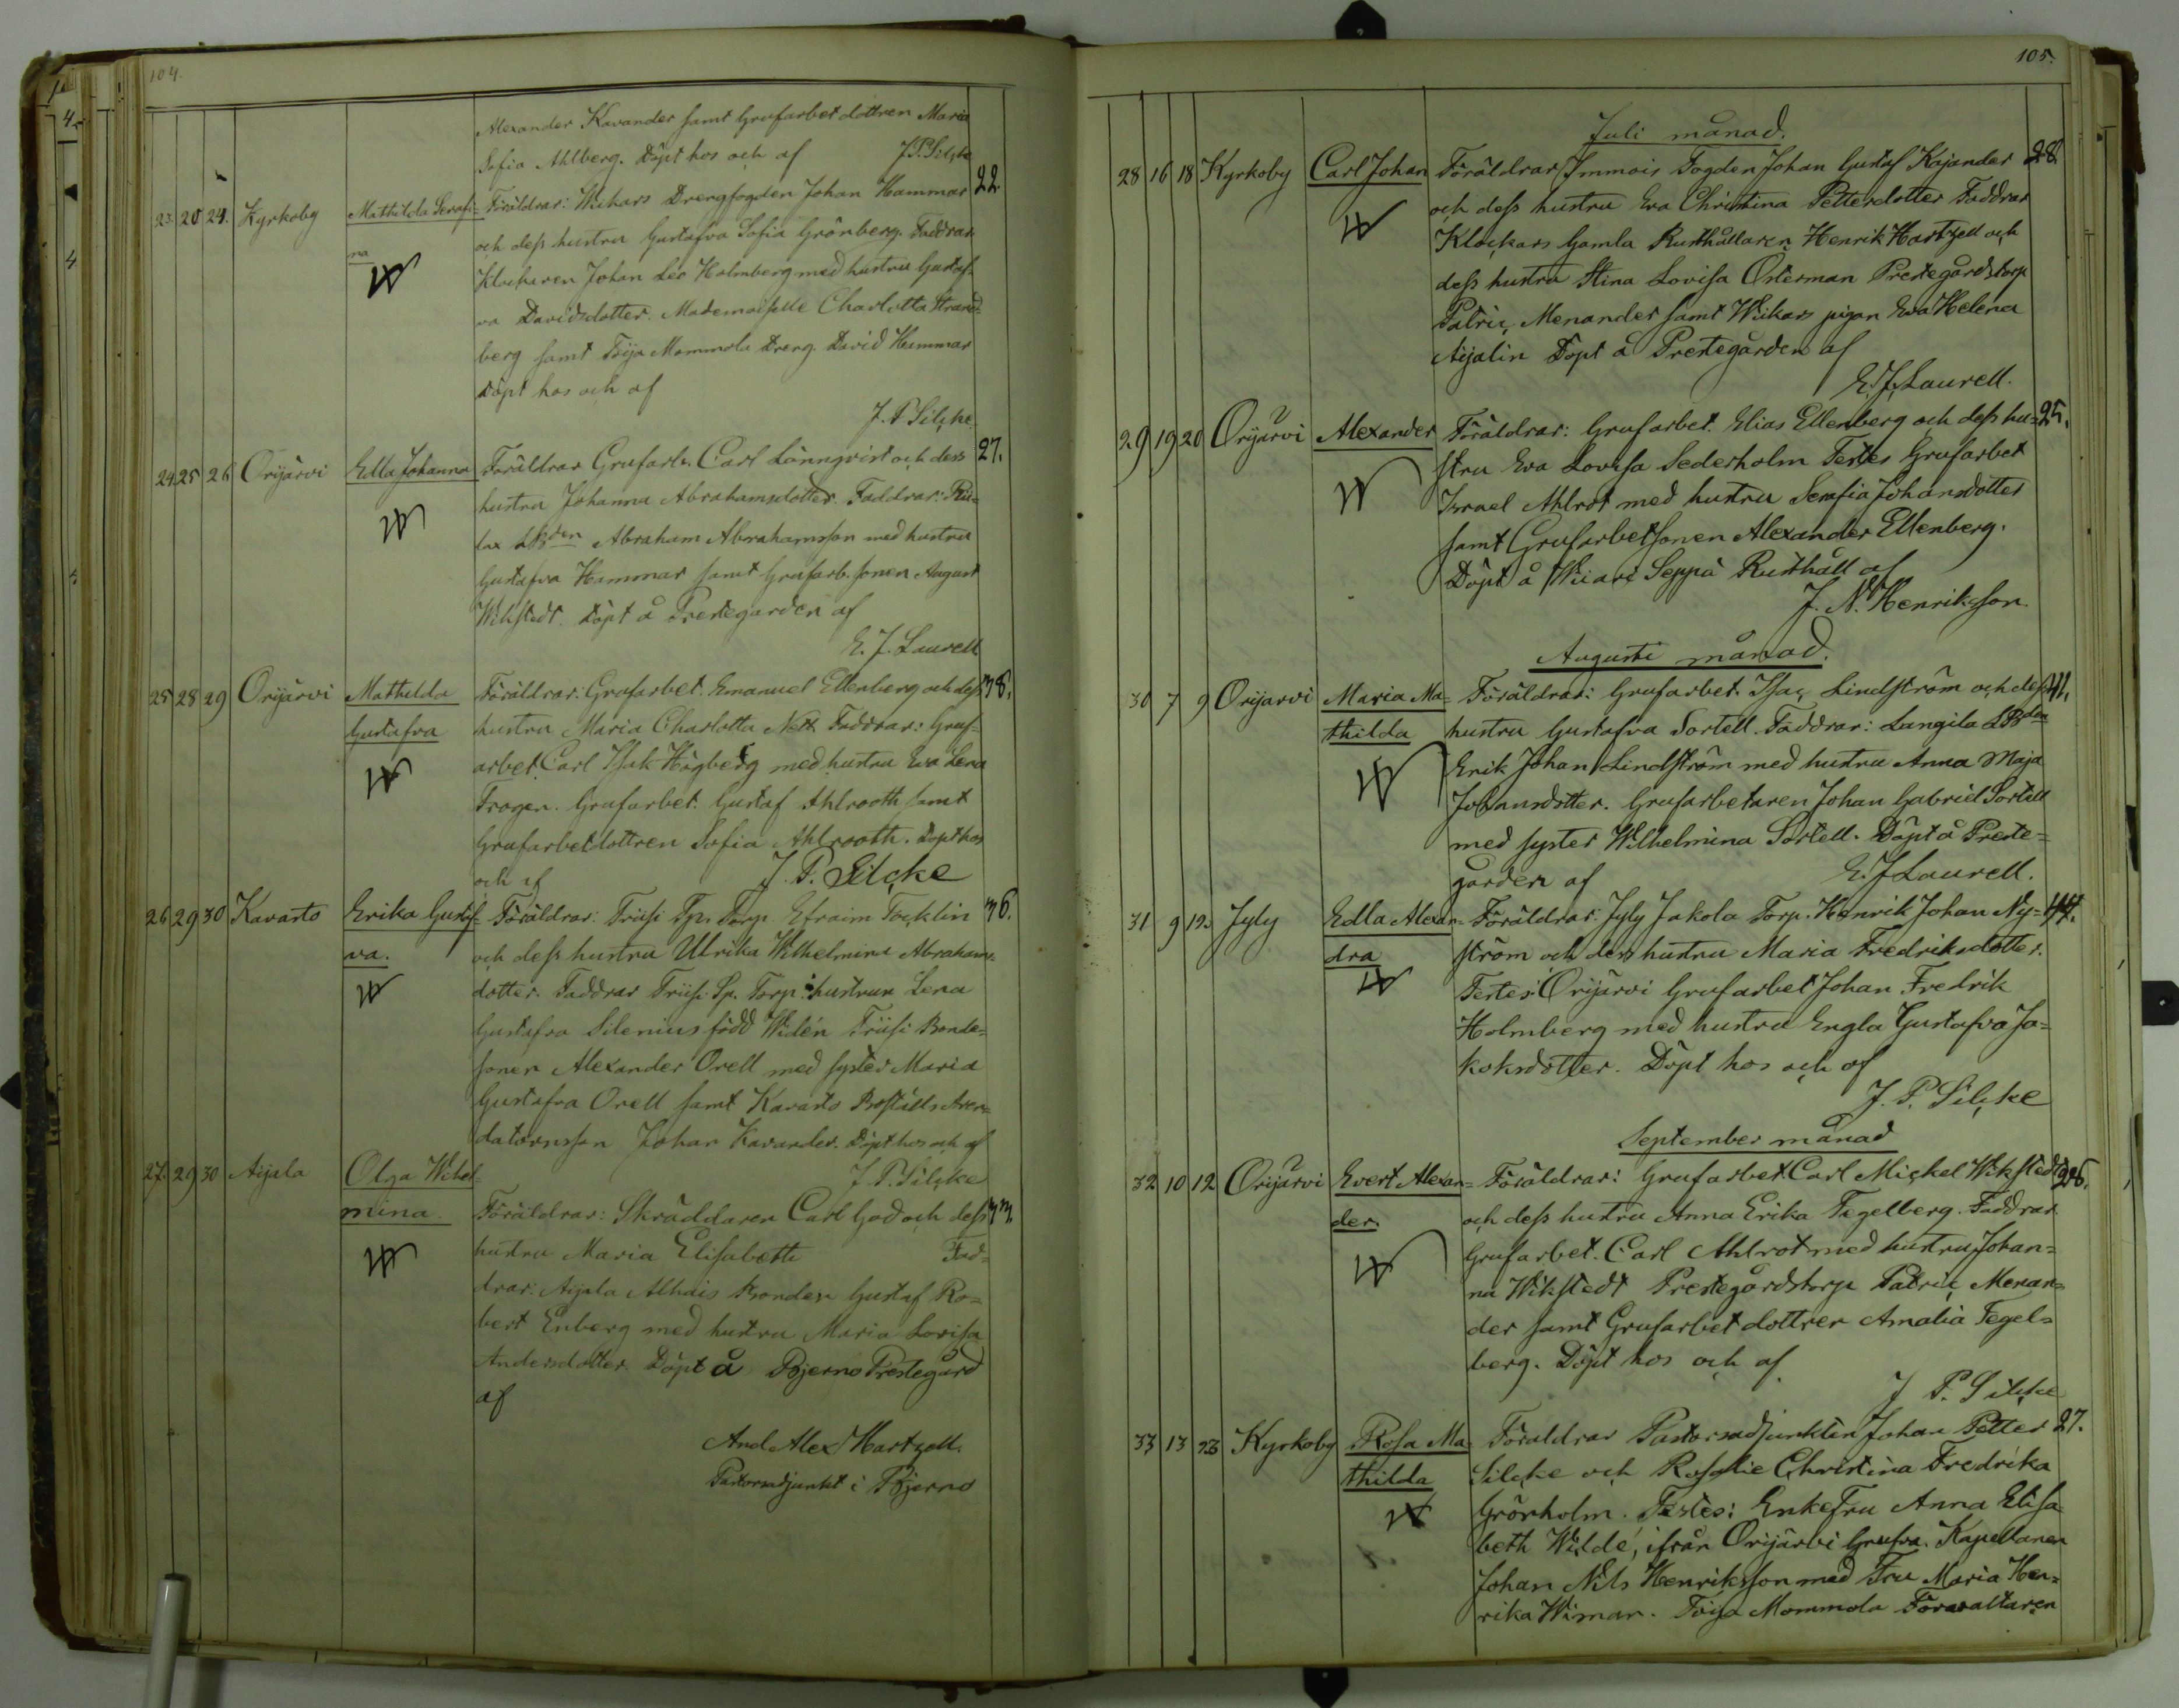 104.
Alexander Kavander samt Grufarbet dottren Maria
Sofia Ahlberg. Döpt hos och af J.P. Silcke
23. 20 24. Kyrkoby Mathilda Serafi= Föräldrar: Wiikars Drengfogden Johan Hammar 22.
na och dess hustru Gustafva Sofia Grönberg. Faddrar
Klockaren Johan Leo Holmberg med hustru Gustaf=
va Davidsdotter. Mademoiselle Charlotta Strand=
berg samt Toija Mommola Dreng. David Hammar
Döpt hos och af
J. P. Silcke
24. 25 26 Orijärvi Edla Johanna Föräldrar Grufarb. Carl Lönnqvist och dess 27.
hustru Johanna Abrahamsdotter. Faddrar:
Abraham Abrahamsson med hustru
Gustafva Hammar samt Grufarb. sonen August
Wikstedt. Döpt å Prestegarden af
E. J. Laurell
25 28 29 Orijärvi Mathilda Föräldrar: Grufarbet. Emanuel Ellenberg och dess 38.
Gustafva hustru Maria Charlotta Faddrar: Gruf=
arbet. Carl Isak Högberg med hustru Eva Lena
Trogen. Grufarbet. Gustaf Ahlrooth samt
Grufarbet dottren Sofia Ahlrooth. Döpt hos
och af J. P. Silcke
26 29 30 Kavasto Erika Gustaf= Föräldrar: Torp. Efraim Tocklin 36.
va. och dess hustru Ulrika Wilhelmina Abrahams=
dotter. Faddrar Torp. hustrun Lena
Gustafva Silenius född Widén Bonde=
sonen Alexander Orell med syster Maria
Gustafva Orell samt Kavasto Boställs Aren=
datorsson Johan Kavander. Döpt hos och af
J. P. Silcke
27. 29 30 Aijala Olga Wilhel=
mina Föräldrar: Skräddaren Carl God och dess 33.
hustru Maria Elisabeth Fad=
drar: Aijala Alhais Bonden Gustaf Ro=
bert Enberg med hustru Maria Lovisa
Andersdotter Döpt å Bjerno Prestegård
af
And Alex Hartzell.
Pastorsadjunkt i Bjerno
105.
Juli månad.
28 16 18 Kyrkoby Carl Johan Föräldrar Immois Fogden Johan Gustaf Kajander 28.
och dess hustru Eva Christina Pettersdotter Faddrar
Klockars Gamla Rusthållaren Henrik Hartzell och
dess hustru Stina Lovisa Österman Prestegårdstorp
Patric Menander samt Wiikars pigan Eva Helena
Aijalin Döpt å Prestegården af
E. J. Laurell.
29 19 20 Orijärvi Alexander Föräldrar: Grufarbet. Elias Ellenberg och dess hu= 25.
stru Eva Lovisa Sederholm Testes Grufarbet
Israel Ahlrot med hustru Serafia Johansdotter
samt Grufarbetssonen Alexander Ellenberg.
Döpt å Wiiari Seppä Rusthåll af
J. N. Henriksson.
Augusti månad.
30 7 9 Orijärvi Maria Ma= Föräldrar: Grufarbet. Isac Lindström och dess 41.
thilda hustru Gustafva Sortell. Faddrar: Langila
Erik Johan Lindström med hustru Anna Maja
Johansdotter. Grufarbetaren Johan Gabriel Sortell
med syster Wilhelmina Sortell. Döpt å Preste=
garden af E. J. Laurell.
31 9 12. Jyly Edla Alexan= Föräldrar: Jyly Jakola Torp. Henrik Johan Ny= 44.
dra ström och dess hustru Maria Fredriksdotter.
Testes: Orijärvi Grufarbet Johan Fredrik
Holmberg med hustru Engla Gustafva Ja=
koksdotter. Döpt hos och af
J. P. Silcke
September månad
32 10 12 Orijärvi Evert Alexan= Föräldrar: Grufarbet. Carl Mickel Wikstedt 26.
der. och dess hustru Anna Erika Tegelberg. Faddrar
Grufarbet. Carl Ahlrot med hustru Johan=
na Wikstedt Prestegårdstorp Patric Menan=
der samt Grufarbet dottren Amalia Tegel=
berg. Döpt hos och af
J P. Silcke
33 13 23 Kyrkoby Rosa Ma= Föraldrar Pastorsadjunkten Johan Petter 27.
thilda Silcke och Rosalie Christina Fredrika
Grönholm. Testes: Enkefru Anna Elisa
beth Wildé, ifrån Orijärvi Grufva. Kapellanen
Johan Nils Henriksson med Fru Maria Hen=
rika Wiman. Toija Mommola Förvaltaren